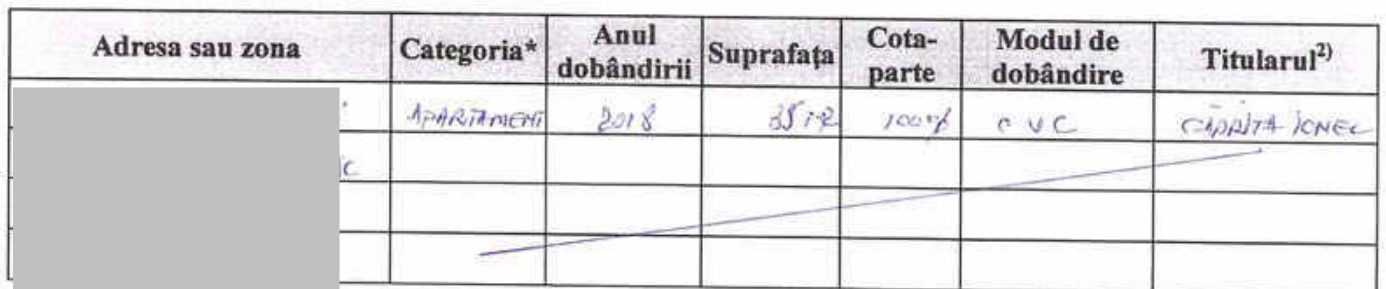 Adresa sau zona Categoria* Anul dobândirii Suprafața Cota-parte Modul de dobândire Titularul²⁾
APARTAMENT 2018 100% CVC IONEL